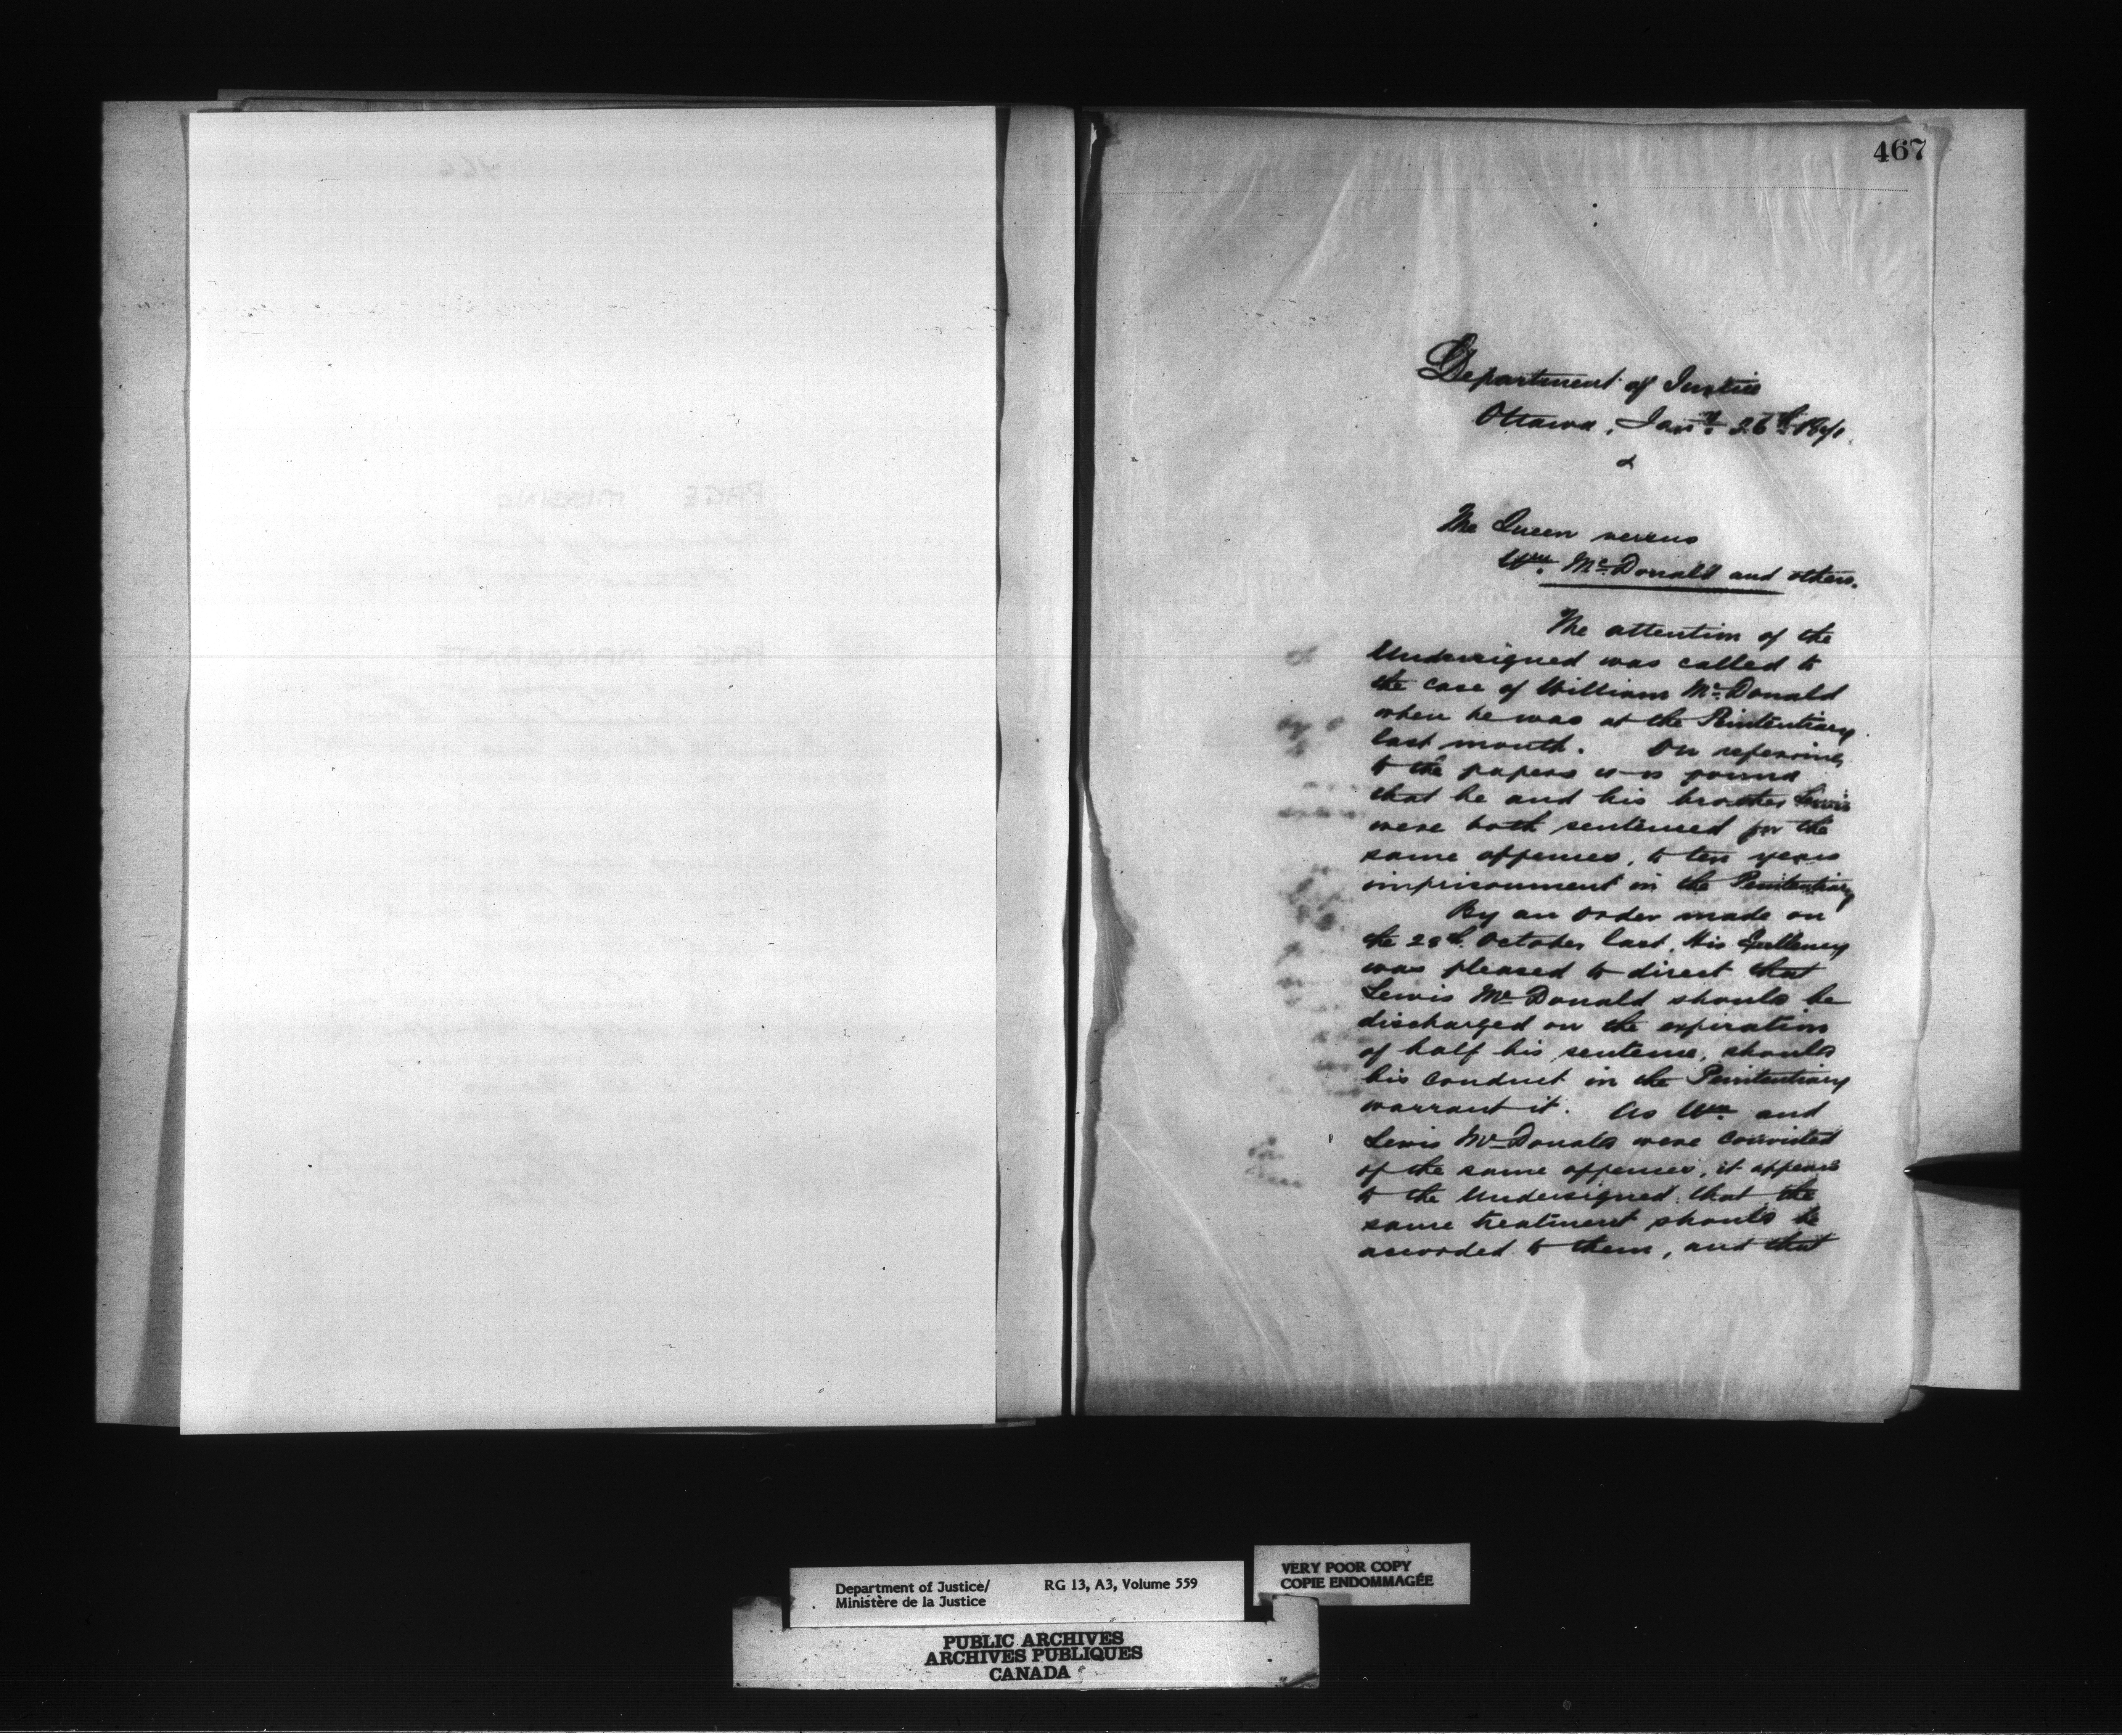 467
Department of Justice
Ottawa, Jany. 26th 1871.
The Queen versus
Wm. McDonald and others.
The attention of the
Undersigned was called to
the case of William McDonald
when he was at the Penitentiary
last month. On referring
to the papers it is found
that he and his brother Lewis
were both sentenced for the
same offences, to ten years
imprisonment in the Penitentiary
By an order made on
the 28th October last, His Excellency
was pleased to direct that
Lewis McDonald should be
discharged on the expiration
of half his sentence, should
his conduct in the Penitentiary
warrant it. As Wm. and
Lewis McDonald were convicted
of the same offences, it appears
to the Undersigned that the
same treatment should be
accorded to them, and that
Department of Justice/ RG 13, A3, Volume 559
Ministère de la Justice
VERY POOR COPY
COPIE ENDOMMAGÉE
PUBLIC ARCHIVES
ARCHIVES PUBLIQUES
CANADA